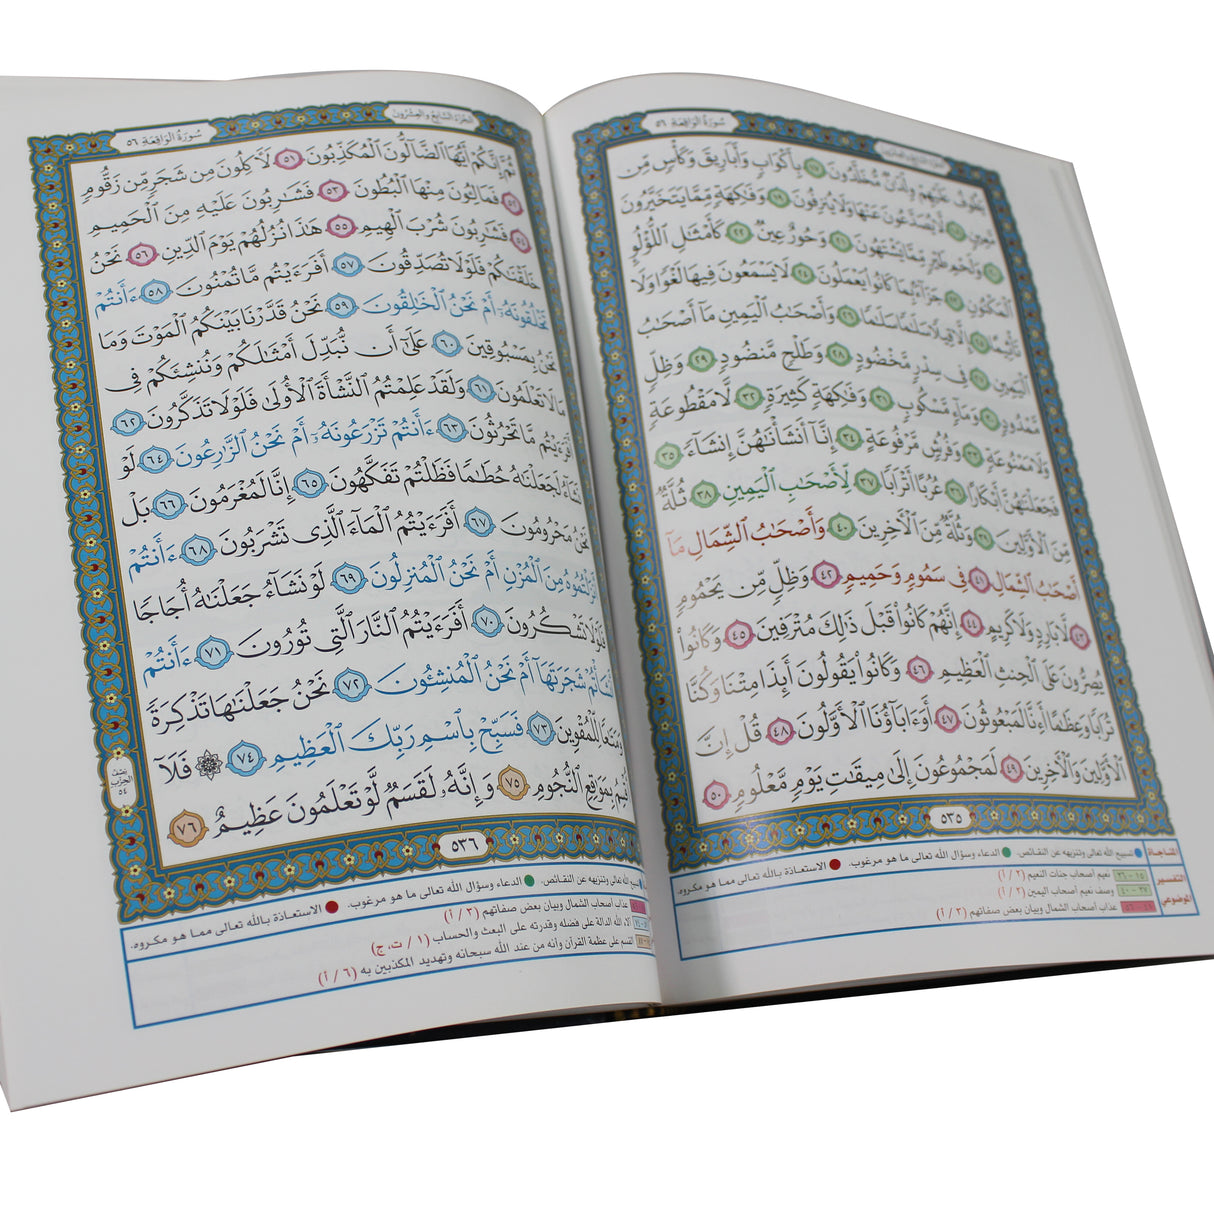 سُورَةُ الوَاقِعَةِ ٥٦
يَطُوفُ عَلَيْهِمْ وِلْدَٰنٌ مُّخَلَّدُونَ ١٧ بِأَكْوَابٍ وَأَبَارِيقَ وَكَأْسٍ مِّن
مَّعِينٍ ١٨ لَّا يُصَدَّعُونَ عَنْهَا وَلَا يُنزِفُونَ ١٩ وَفَٰكِهَةٍ مِّمَّا يَتَخَيَّرُونَ
٢٠ وَلَحْمِ طَيْرٍ مِّمَّا يَشْتَهُونَ ٢١ وَحُورٌ عِينٌ ٢٢ كَأَمْثَٰلِ ٱللُّؤْلُؤِ
ٱلْمَكْنُونِ ٢٣ جَزَآءًۢ بِمَا كَانُوا۟ يَعْمَلُونَ ٢٤ لَا يَسْمَعُونَ فِيهَا لَغْوًا وَلَا
تَأْثِيمًا ٢٥ إِلَّا قِيلًا سَلَٰمًا سَلَٰمًا ٢٦ وَأَصْحَٰبُ ٱلْيَمِينِ مَآ أَصْحَٰبُ
ٱلْيَمِينِ ٢٧ فِى سِدْرٍ مَّخْضُودٍ ٢٨ وَطَلْحٍ مَّنضُودٍ ٢٩ وَظِلٍّ
مَّمْدُودٍ ٣٠ وَمَآءٍ مَّسْكُوبٍ ٣١ وَفَٰكِهَةٍ كَثِيرَةٍ ٣٢ لَّا مَقْطُوعَةٍ
وَلَا مَمْنُوعَةٍ ٣٣ وَفُرُشٍ مَّرْفُوعَةٍ ٣٤ إِنَّآ أَنشَأْنَٰهُنَّ إِنشَآءً ٣٥
فَجَعَلْنَٰهُنَّ أَبْكَارًا ٣٦ عُرُبًا أَتْرَابًا ٣٧ لِّأَصْحَٰبِ ٱلْيَمِينِ ٣٨ ثُلَّةٌ
مِّنَ ٱلْأَوَّلِينَ ٣٩ وَثُلَّةٌ مِّنَ ٱلْءَاخِرِينَ ٤٠ وَأَصْحَٰبُ ٱلشِّمَالِ مَآ
أَصْحَٰبُ ٱلشِّمَالِ ٤١ فِى سَمُومٍ وَحَمِيمٍ ٤٢ وَظِلٍّ مِّن يَحْمُومٍ
٤٣ لَّا بَارِدٍ وَلَا كَرِيمٍ ٤٤ إِنَّهُمْ كَانُوا۟ قَبْلَ ذَٰلِكَ مُتْرَفِينَ ٤٥ وَكَانُوا۟
يُصِرُّونَ عَلَى ٱلْحِنثِ ٱلْعَظِيمِ ٤٦ وَكَانُوا۟ يَقُولُونَ أَئِذَا مِتْنَا وَكُنَّا
تُرَابًا وَعِظَٰمًا أَءِنَّا لَمَبْعُوثُونَ ٤٧ أَوَءَابَآؤُنَا ٱلْأَوَّلُونَ ٤٨ قُلْ إِنَّ
ٱلْأَوَّلِينَ وَٱلْءَاخِرِينَ ٤٩ لَمَجْمُوعُونَ إِلَىٰ مِيقَٰتِ يَوْمٍ مَّعْلُومٍ ٥٠
٥٣٥
المناجاة تسبيح الله تعالى وتنزيهه عن النقائص. الدعاء وسؤال الله تعالى ما هو مرغوب. الاستعاذة بالله تعالى مما هو مكروه.
التفسير الموضوعي ١٥ - ٣٦ نعيم أصحاب جنات النعيم (٢ / أ)
٣٧ - ٤٠ وصف نعيم أصحاب اليمين (٢ / أ)
عذاب أصحاب الشمال وبيان بعض صفاتهم (٢ / أ)
الجُزْءُ السَّابِعُ وَالعِشْرُونَ سُورَةُ الوَاقِعَةِ ٥٦
ثُمَّ إِنَّكُمْ أَيُّهَا ٱلضَّآلُّونَ ٱلْمُكَذِّبُونَ ٥١ لَءَاكِلُونَ مِن شَجَرٍ مِّن زَقُّومٍ
٥٢ فَمَالِـُٔونَ مِنْهَا ٱلْبُطُونَ ٥٣ فَشَٰرِبُونَ عَلَيْهِ مِنَ ٱلْحَمِيمِ
٥٤ فَشَٰرِبُونَ شُرْبَ ٱلْهِيمِ ٥٥ هَٰذَا نُزُلُهُمْ يَوْمَ ٱلدِّينِ ٥٦ نَحْنُ
خَلَقْنَٰكُمْ فَلَوْلَا تُصَدِّقُونَ ٥٧ أَفَرَءَيْتُم مَّا تُمْنُونَ ٥٨ ءَأَنتُمْ
تَخْلُقُونَهُۥٓ أَمْ نَحْنُ ٱلْخَٰلِقُونَ ٥٩ نَحْنُ قَدَّرْنَا بَيْنَكُمُ ٱلْمَوْتَ وَمَا
نَحْنُ بِمَسْبُوقِينَ ٦٠ عَلَىٰٓ أَن نُّبَدِّلَ أَمْثَٰلَكُمْ وَنُنشِئَكُمْ فِى
مَا لَا تَعْلَمُونَ ٦١ وَلَقَدْ عَلِمْتُمُ ٱلنَّشْأَةَ ٱلْأُولَىٰ فَلَوْلَا تَذَكَّرُونَ ٦٢
أَفَرَءَيْتُم مَّا تَحْرُثُونَ ٦٣ ءَأَنتُمْ تَزْرَعُونَهُۥٓ أَمْ نَحْنُ ٱلزَّٰرِعُونَ ٦٤ لَوْ
نَشَآءُ لَجَعَلْنَٰهُ حُطَٰمًا فَظَلْتُمْ تَفَكَّهُونَ ٦٥ إِنَّا لَمُغْرَمُونَ ٦٦ بَلْ
نَحْنُ مَحْرُومُونَ ٦٧ أَفَرَءَيْتُمُ ٱلْمَآءَ ٱلَّذِى تَشْرَبُونَ ٦٨ ءَأَنتُمْ
أَنزَلْتُمُوهُ مِنَ ٱلْمُزْنِ أَمْ نَحْنُ ٱلْمُنزِلُونَ ٦٩ لَوْ نَشَآءُ جَعَلْنَٰهُ أُجَاجًا
فَلَوْلَا تَشْكُرُونَ ٧٠ أَفَرَءَيْتُمُ ٱلنَّارَ ٱلَّتِى تُورُونَ ٧١ ءَأَنتُمْ
أَنشَأْتُمْ شَجَرَتَهَآ أَمْ نَحْنُ ٱلْمُنشِـُٔونَ ٧٢ نَحْنُ جَعَلْنَٰهَا تَذْكِرَةً
وَمَتَٰعًا لِّلْمُقْوِينَ ٧٣ فَسَبِّحْ بِٱسْمِ رَبِّكَ ٱلْعَظِيمِ ٧٤ ۞ فَلَآ
أُقْسِمُ بِمَوَٰقِعِ ٱلنُّجُومِ ٧٥ وَإِنَّهُۥ لَقَسَمٌ لَّوْ تَعْلَمُونَ عَظِيمٌ ٧٦
نِصْفُ
الحِزْبِ
٥٤
٥٣٦
تسبيح الله تعالى وتنزيهه عن النقائص. الدعاء وسؤال الله تعالى ما هو مرغوب. الاستعاذة بالله تعالى مما هو مكروه.
عذاب أصحاب الشمال وبيان بعض صفاتهم (٢ / أ)
آلاء الله الدالة على فضله وقدرته على البعث والحساب (١ / ت، ج)
القسم على عظمة القرآن وأنه من عند الله سبحانه وتهديد المكذبين به (٦ / أ)